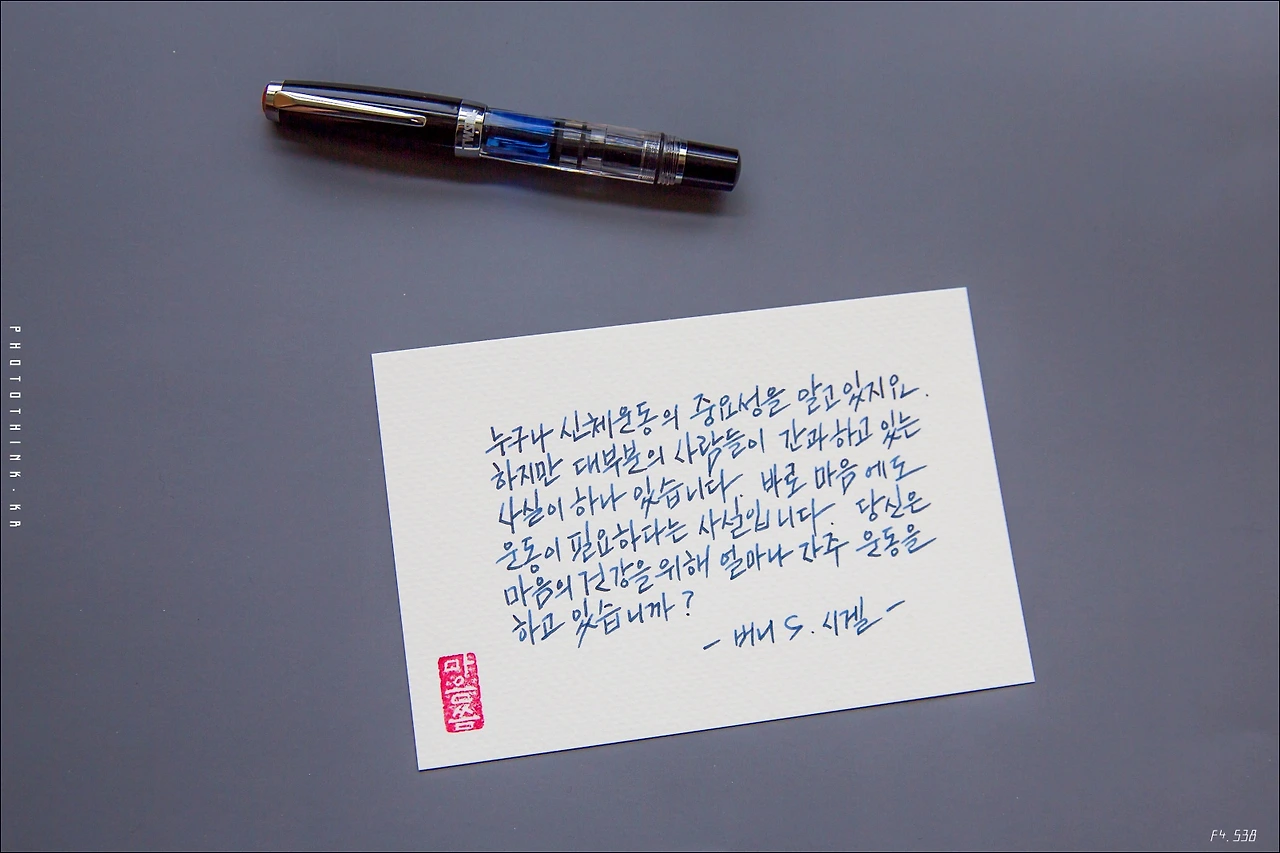 TWSBI
누구나 신체운동의 중요성을 알고있지요.
하지만 대부분의 사람들이 간과하고 있는
사실이 하나 있습니다. 바로 마음에도
운동이 필요하다는 사실입니다. 당신은
마음의 건강을 위해 얼마나 자주 운동을
하고 있습니까?
- 버니 S. 시겔 -
PHOTOTHINK.KR
F4.538